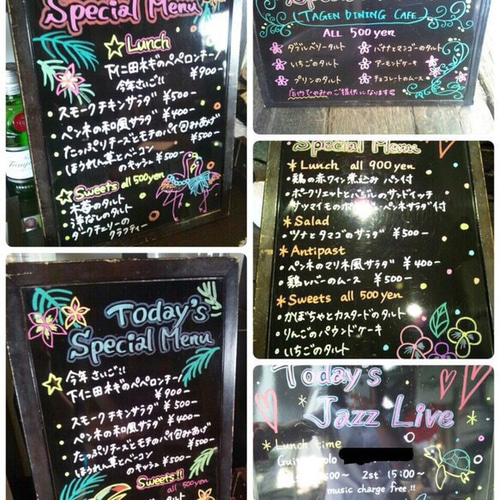 Special Menu
Lunch
下仁田ネギのペペロンチーノ
今年さいご!! ¥900-
スモークチキンサラダ ¥500-
ペンネの和風サラダ ¥400-
たっぷりチーズとモチのパイ包みあげ ¥500-
ほうれん草とベーコンのキッシュ ¥500-
Sweets all 500yen
洋なしのタルト
ダークチェリーの
クラフティー
Today's
Special Menu
今年さいご!!
下仁田ネギのペペロンチーノ
¥900-
スモークチキンサラダ ¥500-
ペンネの和風サラダ ¥400-
たっぷりチーズとモチのパイ包みあげ
¥500-
ほうれん草とベーコン
のキッシュ ¥500-
Sweets!!
all 500yen
Special Menu
(TAGEN DINING CAFE)
ALL 500yen
ダブルベリータルト
バナナとマンゴのタルト
いちごのタルト
アーモンドケーキ
プリンのタルト
チョコレートのムース
店内でのみのご提供になります
Special Menu
Lunch all 900yen
鶏の赤ワイン煮込み パン付
サツマイモのポタージュ・ペンネサラダ付
Salad
ツナとタマゴのサラダ ¥500-
Antipast
ペンネのマリネ風サラダ ¥400-
鶏レバーのムース ¥500-
Sweets all 500yen
かぼちゃとカスタードのタルト
りんごのパウンドケーキ
いちごのタルト
Today's
Jazz Live
Lunch time
2st 15:00~
music charge free!!